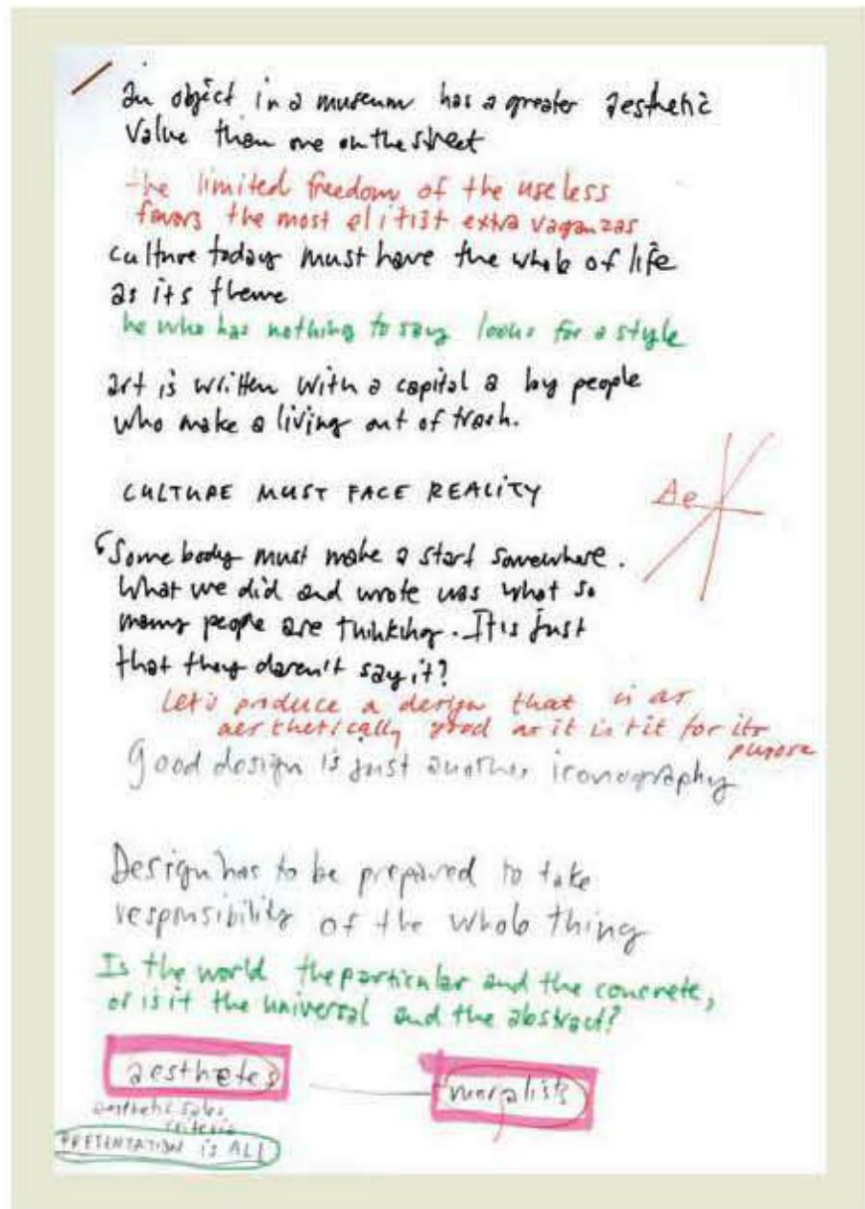 an object in a museum has a greater aesthetic
value than one on the street
the limited freedom of the useless
favors the most elitist extra vaganzas
culture today must have the whole of life
as its theme
he who has nothing to say looks for a style
art is written with a capital a by people
who make a living out of trash.
CULTURE MUST FACE REALITY
Ae
Some body must make a start somewhere.
What we did and wrote was what so
many people are thinking. It is just
that they daren't say it?
Let's produce a design that is as
aesthetically good as it is fit for its
purpose
Good design is just another iconography
Design has to be prepared to take
responsibility of the whole thing
Is the world the particular and the concrete,
or is it the universal and the abstract?
aesthetes
moralists
aesthetic sales
criteria
PRESENTATION is ALL